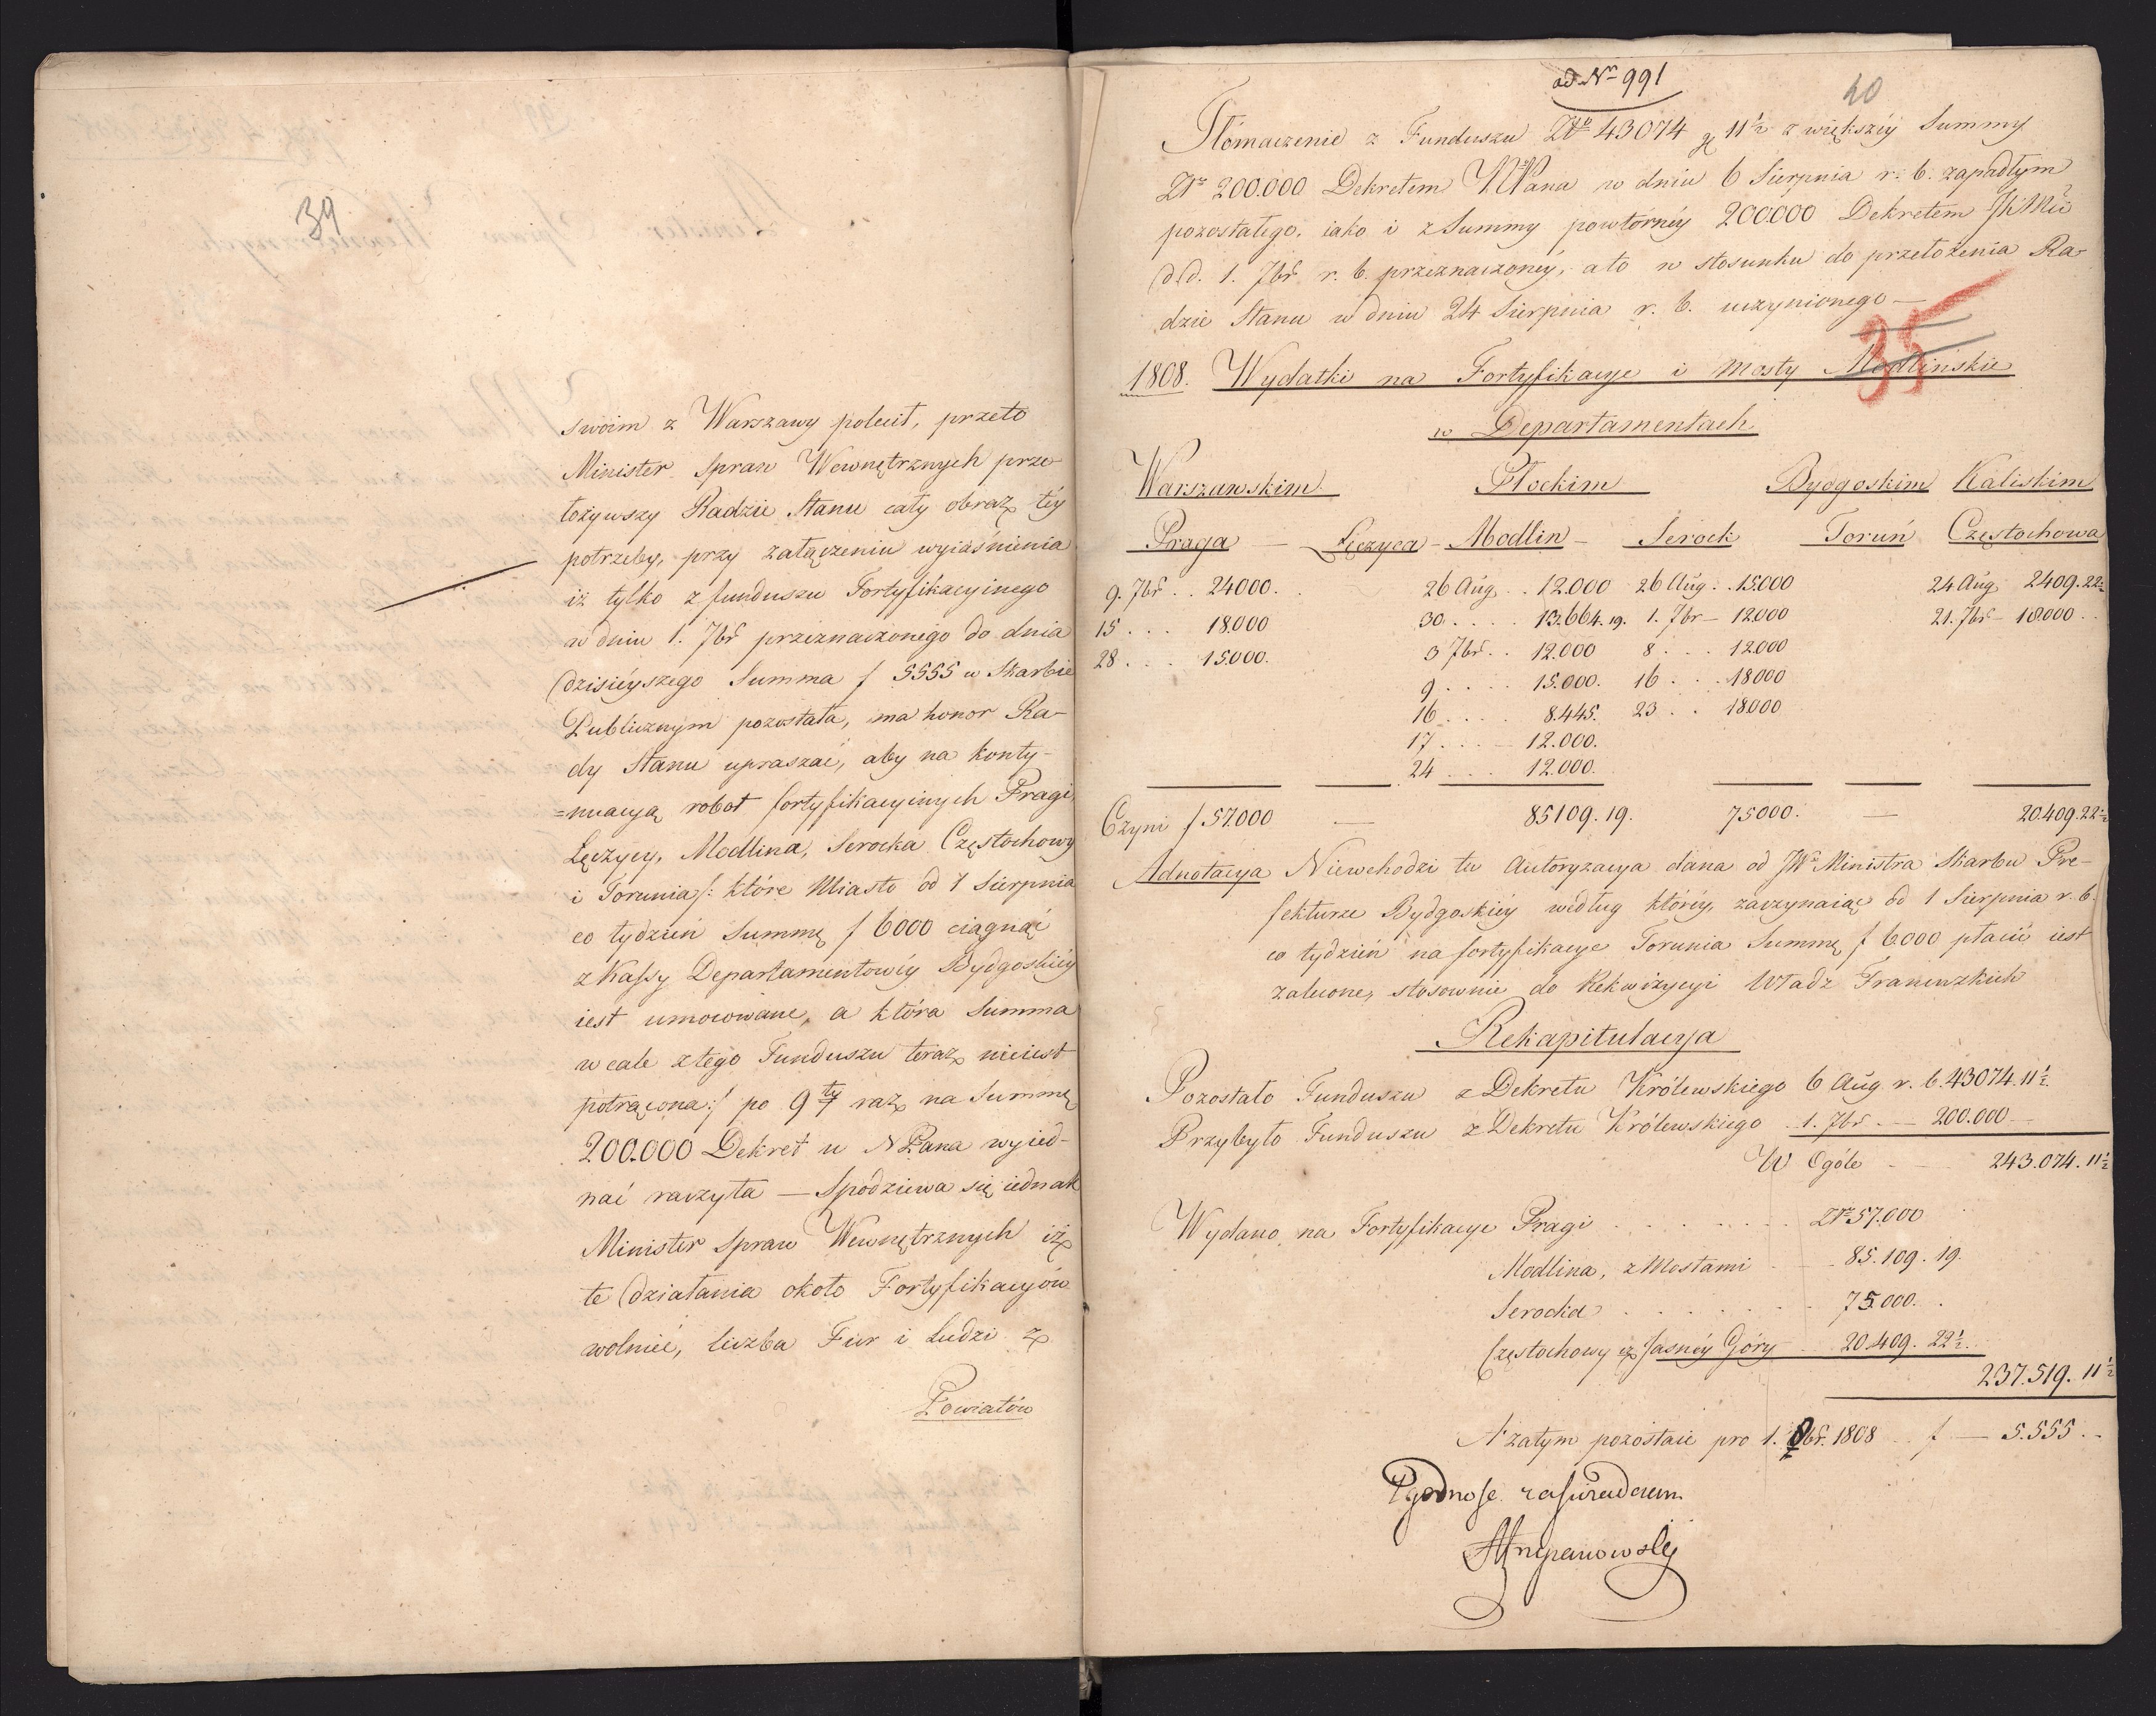 39
swoim z Warszawy polecił, przeto
Minister Spraw Wewnętrznych prze-
łożywszy Radzie Stanu cały obraz téy
potrzeby, przy załączeniu wyiaśnienia
iż tylko z funduszu Fortyfikacyinego
w dniu 1. 7br przeznaczonego do dnia
dzisieyszego Summa f 5555 w Skarbie
Publicznym pozostała, ma honor Ra-
dy Stanu upraszać, aby na konty-
=nuacyą robot fortyfikacyinych Pragi,
Łęczycy, Modlina, Serocka Częstochowy
i Torunia /: które Miasto od 1 Sierpnia
co tydzień Summę f 6000 ciągnąć
z Kassy Departamentowéy Bydgoskiéy
iest umocowane, a która Summa
wcale z tego Funduszu teraz nieiest
potrącona :/ po 9ty raz na Summę
200.000 Dekret u NPana wyied-
nać raczyła — Spodziewa się iednak
Minister Spraw Wewnętrznych iż
te działania około Fortyfikacyów
wolnieć, liczba Fur i Ludzi z
Powiatów
ad Nr 991
40
Tłómaczenie z Funduszu Złp 43074 gr 11½ z większéy Summy
Złr 200.000 Dekretem NPana w dniu 6 Sierpnia r. b. zapadłym
pozostałego, iako i z Summy powtórnéy 200000 Dekretem JKMci
d.d. 1. 7br r. b. przeznaczonéy, a to w stosunku do przełożenia Ra-
dzie Stanu w dniu 24 Sierpnia r. b. uczynionego —
35
1808. Wydatki na Fortyfikacye i Mosty Modlińskie
w Departamentach
Warszawskim Płockim Bydgoskim Kaliskim
Praga — Łęczyca — Modlin — Serock Toruń Częstochowa
9. 7br . . 24000. 26 Aug . . 12.000 26 Aug . . 15000 24 Aug 2409.22½
15 . . . 18000 30 . . . . 13.664.19. 1. 7br — 12000 21. 7br — 18000 . .
28 . . . 15000. 3 7br . . 12.000 8 . . . 12000
9 . . . . 15.000. 16 . . . 18000
16 . . . . 8.445. 23 . . 18000
17 . . . — 12.000.
24 . . . 12.000.
Czyni f 57.000 — 85109.19. 75000. — 20.409.22½
Adnotacya Niewchodzi tu Autoryzacya dana od JW Ministra Skarbu Pre-
fekturze Bydgoskiéy według któréy, zaczynaiąc od 1 Sierpnia r. b.
co tydzień na fortyfikacye Torunia Summę f 6000 płacić iest
zalecone, stosownie do Rekwizycyi Władz Francuzkich
Rekapitulacya
Pozostało Funduszu z Dekretu Królewskiego 6 Aug r. b. 43074.11½.
Przybyło Funduszu z Dekretu Królewskiego . 1. 7br . — 200.000 —
W Ogóle — 243.074.11½
Wydano na Fortyfikacye Pragi . . . . . . . . Złr 57.000
Modlina, z Mostami . — . 85.109.19.
Serocka . . . . . . . . 75.000. .
Częstochowy czy Jasnéy Góry — 20.409.22½.
237.519.11½
A zatym pozostaie pro 1. 8br. 1808 . . f — 5.555 . –